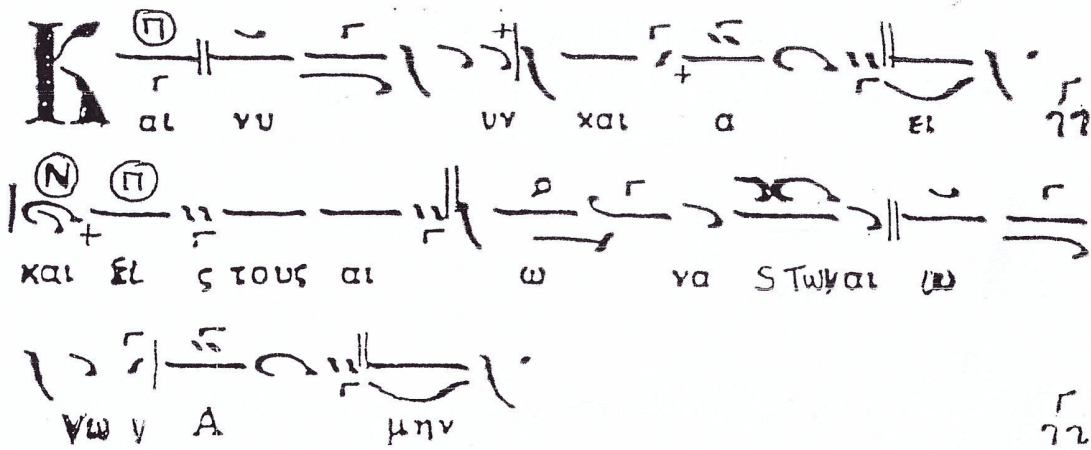 Και νυ υν και α ει
και ει ς τους αι ω να ς των αι ω
νω ν Α μην